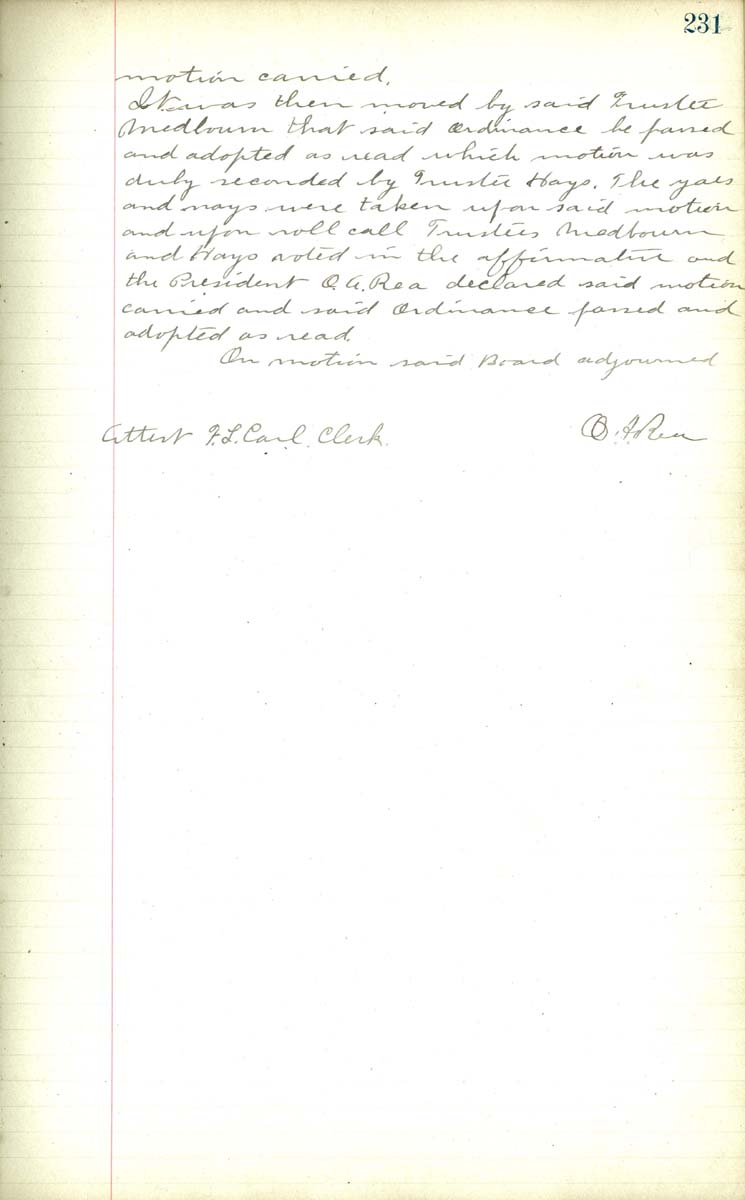 231
motion carried.
It was then moved by said Trustee
Medbourn that said Ordinance be passed
and adopted as read which motion was
duly seconded by Trustee Hays. The yaes
and nays were taken upon said motion
and upon roll call Trustees Medbourn
and Hays voted in the affirmative and
the President O. A. Rea declared said motion
carried and said Ordinance passed and
adopted as read.
On motion said Board adjourned
Attest F. L. Carl. Clerk. O. A. Rea